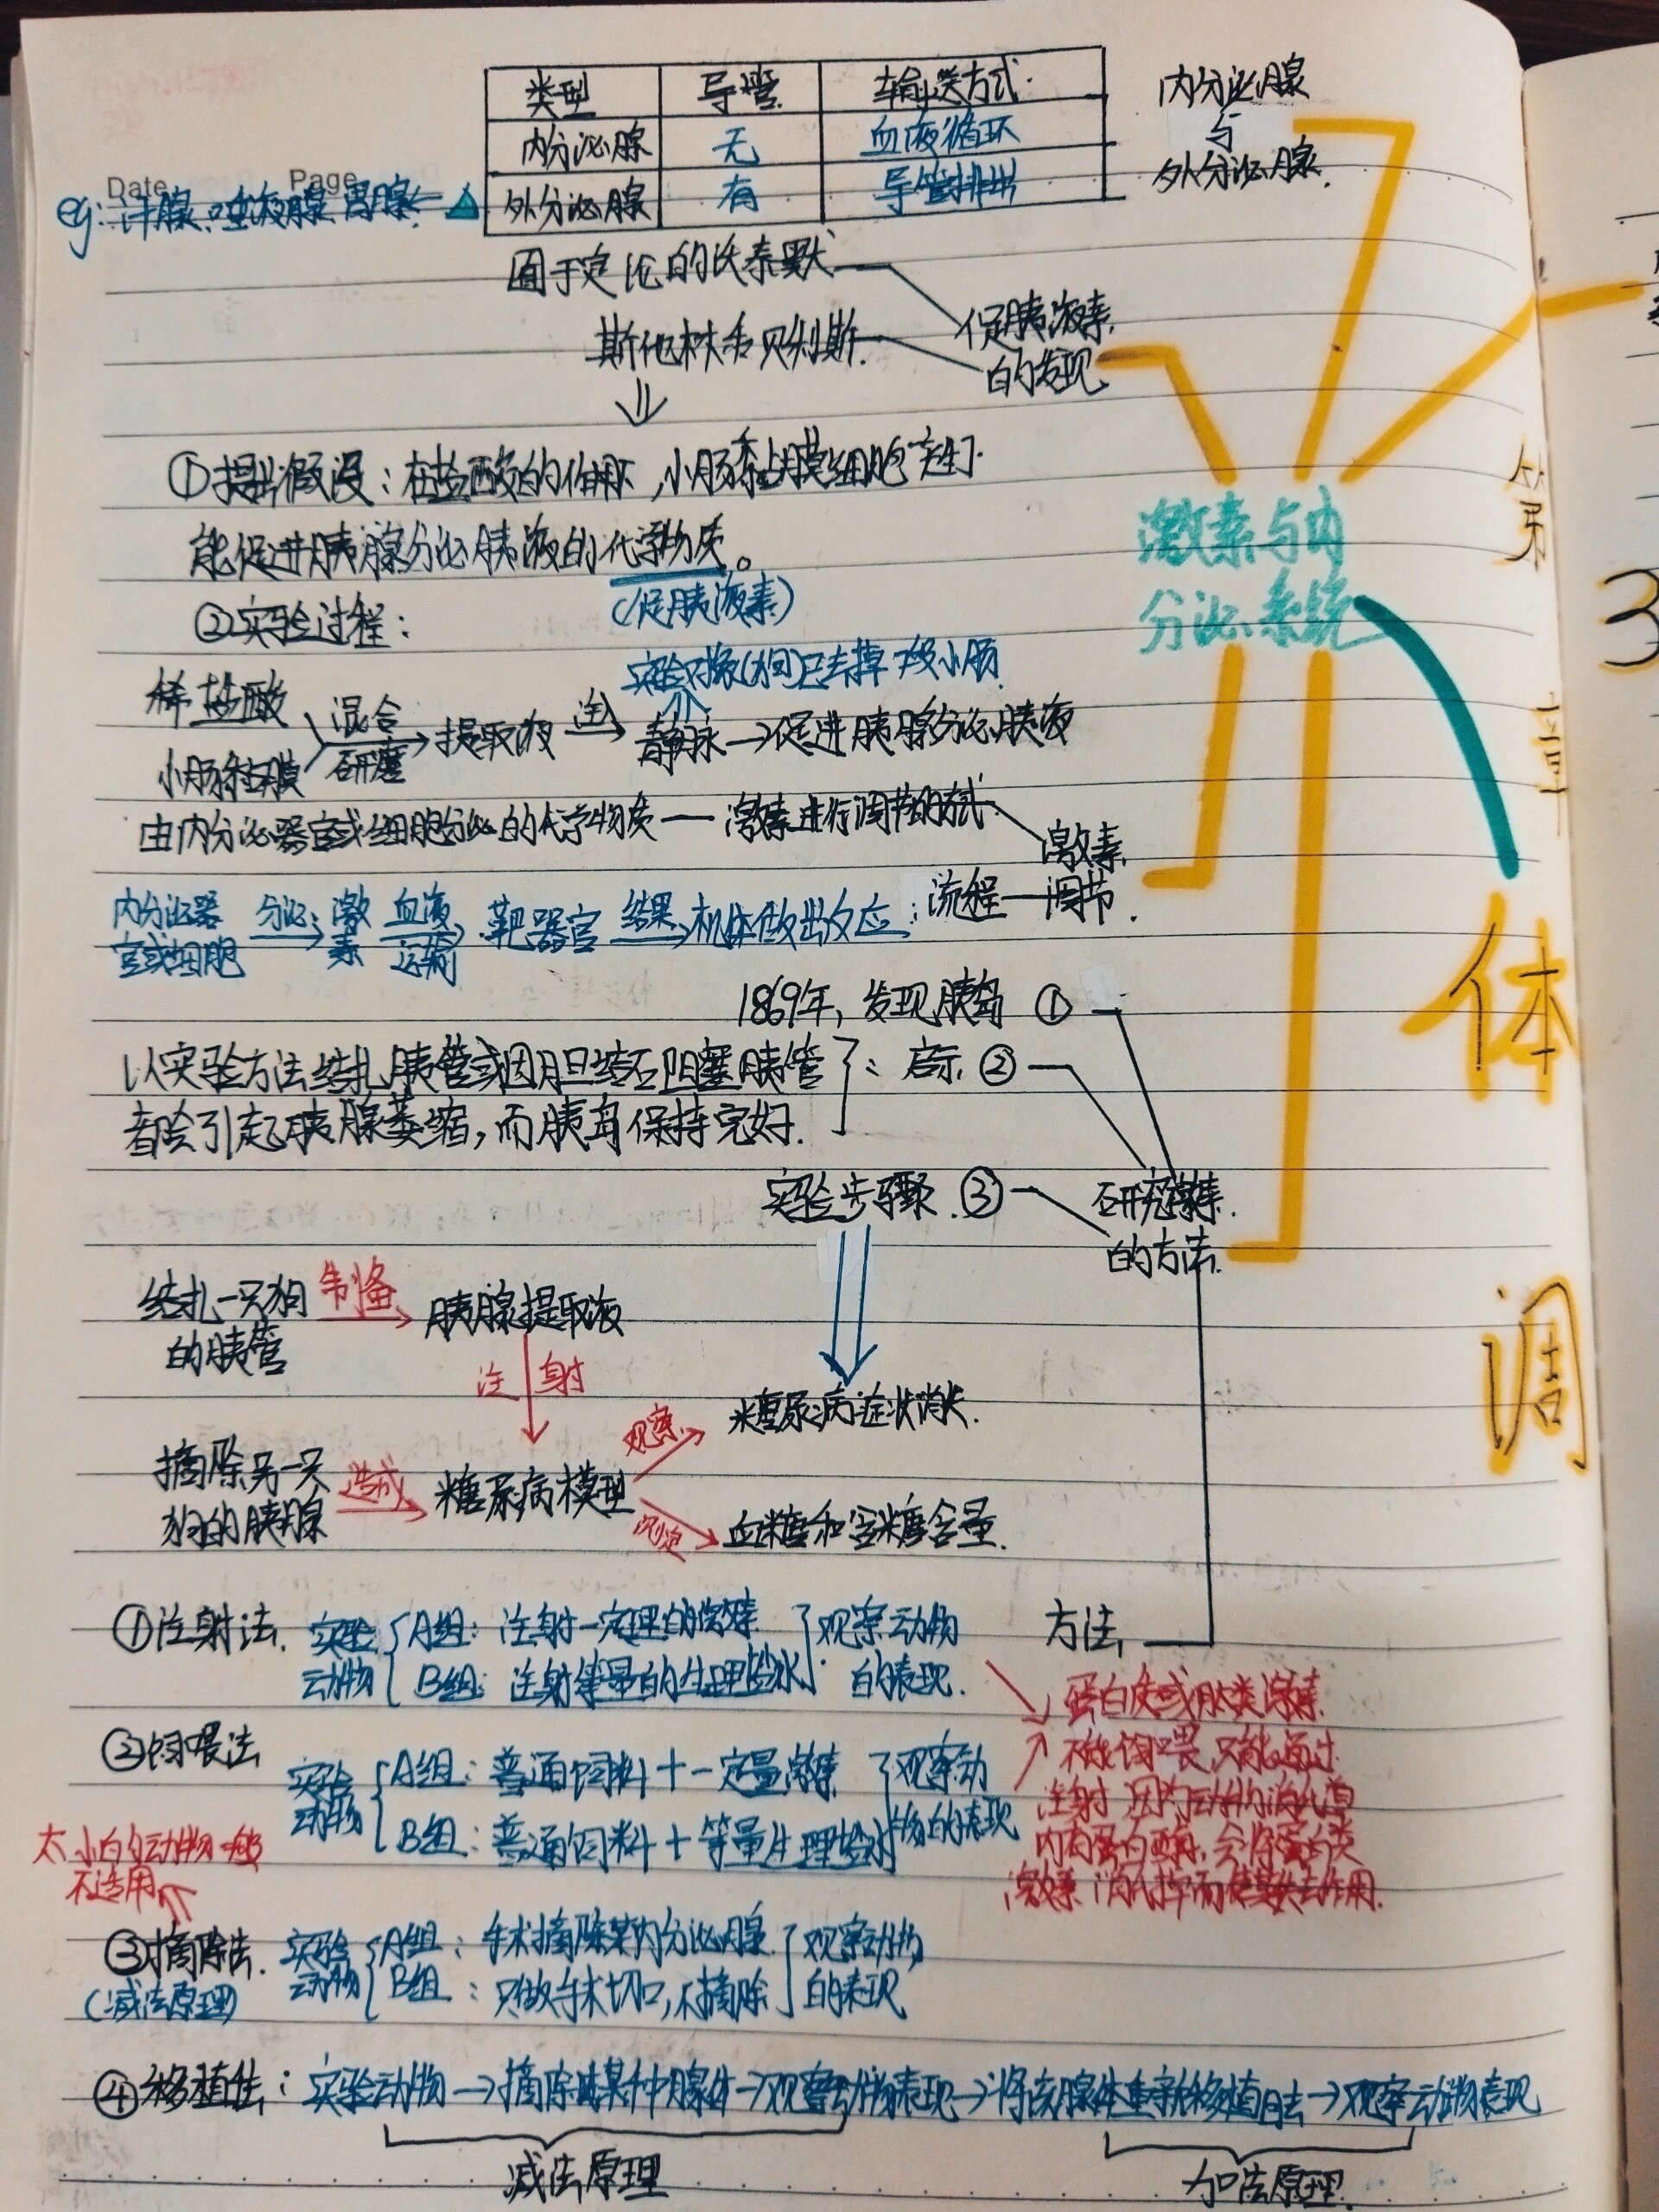 类型 导管 输送方式
内分泌腺 无 血液循环
外分泌腺 有 导管排出
内分泌腺
与
外分泌腺.
Date Page
eg: 汗腺、唾液腺、胃腺
囿于定论的沃泰默
斯他林和贝利斯.
促胰液素
的发现
①提出假设:在盐酸的作用下,小肠黏膜细胞产生了
能促进胰腺分泌胰液的化学物质。
(促胰液素)
②实验过程:
实验对象(狗)已去掉一段小肠
稀盐酸
小肠黏膜
混合
研磨
提取液
注
静脉→促进胰腺分泌胰液
由内分泌器官或细胞分泌的化学物质—激素进行调节的方式
激素
调节.
流程
内分泌器
官或细胞
分泌
激
素
血液
运输
靶器官
结果
机体做出反应
1869年,发现胰岛 ①
以实验方法结扎胰管或因胆结石阻塞胰管
都会引起胰腺萎缩,而胰岛保持完好.
:启示 ②
实验步骤 ③
研究激素
的方法.
结扎一只狗
的胰管
制备
胰腺提取液
注射
摘除另一只
狗的胰腺
造成
糖尿病模型
观察
糖尿病症状消失.
测定
血糖和尿糖含量.
方法
①注射法.
实验
动物
A组:注射一定量的激素
B组:注射等量的生理盐水
观察动物
的表现.
②饲喂法
实验
动物
A组:普通饲料+一定量激素
B组:普通饲料+等量生理盐水
观察动
物的表现
蛋白质或肽类激素
不能饲喂,只能通过
注射,因为动物消化道
内有蛋白酶,会将蛋白类
激素消化掉而使其失去作用.
太小的动物一般
不适用
③摘除法.
(减法原理)
实验
动物
A组:手术摘除某内分泌腺
B组:只做手术切口,不摘除
观察动物
的表现
④移植法:实验动物→摘除某种腺体→观察动物表现→将该腺体重新移植回去→观察动物表现
减法原理
加法原理.
激素与内
分泌系统
第
3
章
体
调